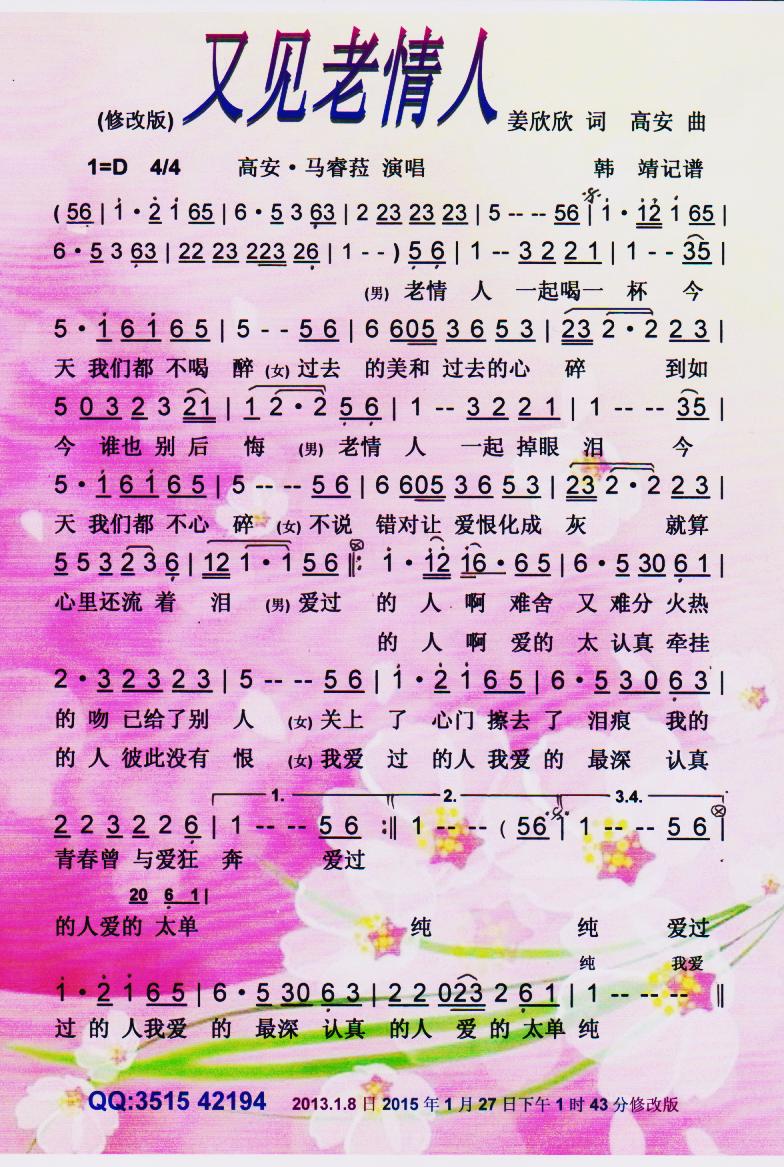 又见老情人
(修改版) 姜欣欣 词 高安 曲
1=D 4/4 高安·马睿菈 演唱 韩 靖记谱
( 56 | 1·2 1 65 | 6·5 3 63 | 2 23 23 23 | 5 -- -- 56 | 1·12 1 65 |
6·5 3 63 | 22 23 223 26 | 1 - - ) 5 6 | 1 -- 3 2 2 1 | 1 - - 35 |
(男) 老情 人 一起喝一 杯 今
5·1 6 1 6 5 | 5 - - 5 6 | 6 605 3 6 5 3 | 23 2·2 2 3 |
天 我们都 不喝 醉 (女) 过去 的美和 过去的心 碎 到如
5 0 3 2 3 21 | 1 2·2 5 6 | 1 -- 3 2 2 1 | 1 -- -- 35 |
今 谁也 别 后 悔 (男) 老情 人 一起 掉眼 泪 今
5·1 6 1 6 5 | 5 -- -- 5 6 | 6 605 3 6 5 3 | 23 2·2 2 3 |
天 我们都 不心 碎 (女) 不说 错对让 爱恨化成 灰 就算
5 5 3 2 3 6 | 12 1·1 5 6 ‖: 1·12 16·6 5 | 6·5 30 6 1 |
心里还流 着 泪 (男) 爱过 的 人 啊 难舍 又 难分 火热
的 人 啊 爱的 太 认真 牵挂
2·3 2 3 2 3 | 5 -- -- 5 6 | 1·2 1 6 5 | 6·5 3 0 6 3 |
的 吻 已给了别 人 (女) 关上 了 心门 擦去 了 泪痕 我的
的 人 彼此没有 恨 (女) 我爱 过 的人 我爱 的 最深 认真
1. 2. 3.4.
2 2 3 2 2 6 | 1 -- -- 5 6 :‖ 1 -- -- ( 56 | 1 -- -- 5 6 |
青春曾 与爱狂 奔 爱过
20 6 1 |
的人爱的 太单 纯 纯 爱过
纯 我爱
1·2 1 6 5 | 6·5 30 6 3 | 2 2 023 2 6 1 | 1 -- -- -- ‖
过 的 人我爱 的 最深 认真 的人 爱 的 太单 纯
QQ:3515 42194 2013.1.8 日 2015 年 1 月 27 日下午 1 时 43 分修改版